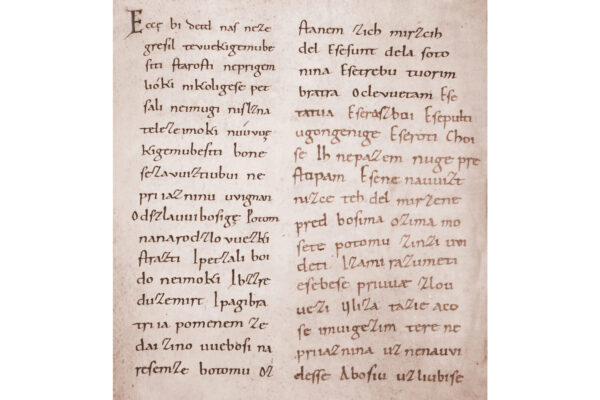 Eccę bi detd naſ neze
greſil tevuekigemube
ſiti ſtaroſti neprigem
lióki nikoligeſe pet
ſali neimugi niſlzna
telezeimoki nuúvuęſ
kigemubeſiti bone
ſezavuiztiubui ne
priiazninu uvignan
Odſzlauuiboſigę Potom
nanarodzlovuezki
ſtrazti Ipetzali boi
do neimoki Ibzzre
duzemirt Ipagibra
triia pomenem ze
dai zino vueboſi na
reſemze botomu oz
ſtanem zich mirzcih
del Eſeſunt dela ſoto
nina Eſetrebu tuorim
bratra Oclevuetam Eſe
tatua Eſerazboi Eſepulti
ugongenige Eſeroti Choi
ſe Ih nepazem nuge pre
ſtupam Eſene nauuizt
nizce teh del mirzene
pred boſima ozima mo
ſete potomu zinzi uvi
deti Izami razumeti
eſebeſe priuuæ zlou
vezi Uliza tazie aco
ſe imuigezim tere ne
priiaznina uznenauvi
deſſe Aboſiu uzliubiſe